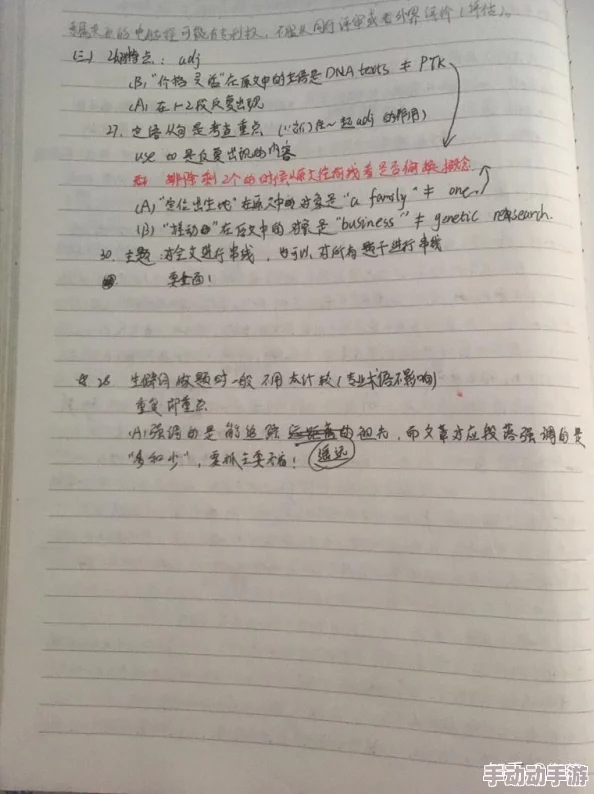 的电脑程可能有专利权，不服从同行评审或者外界评价（评估）。
(三) 26.特点：adj
(B) "价格灵活"在原文中的主语是DNA tests ≠ PTK
(A) 在1-2段反复出现
27. 定语从句是考查重点 (它们在一起adj的作用)
use to 是反复出现的内容
排除剩2个的时候原文往前找看是否偷换概念
(A) "定位出生地"在原文中的对象是"a family" ≠ one
(B) "推动由"在原文中的对象是"business" ≠ genetic research.
30. 主题：对全文进行串线，也可以对所有题干进行串线
要全面！
28 生僻词做题时一般不用太计较（专业术语不影响）
重复即重点
(A) 强调的是能追踪的祖先，而文章对应段落强调的是
遥远
"多和少"，要抓主要矛盾！
手动动手游